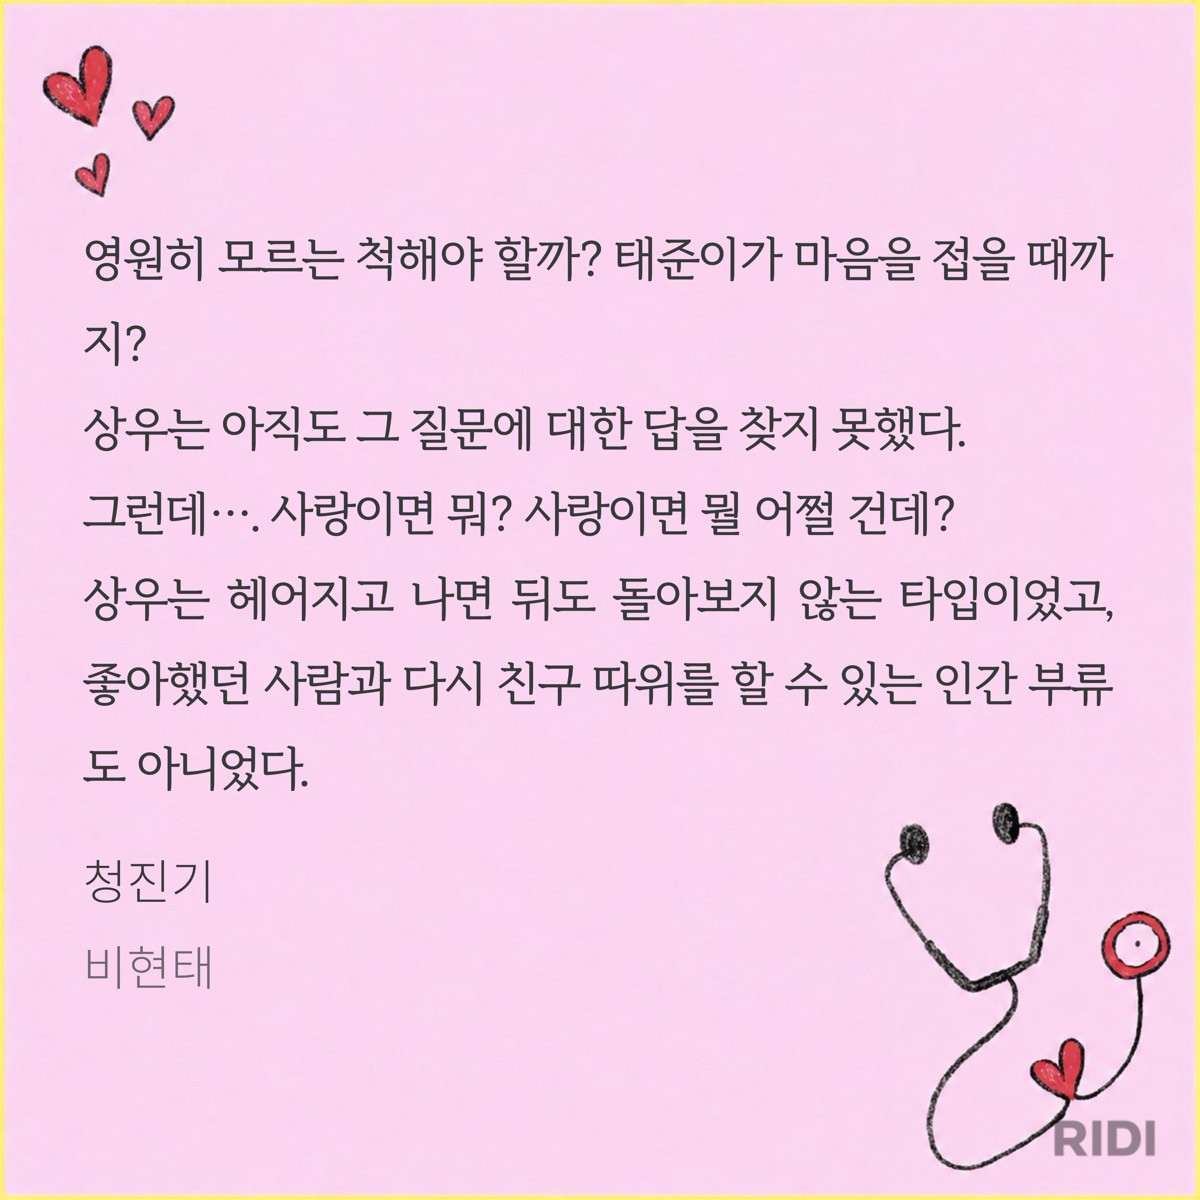 영원히 모르는 척해야 할까? 태준이가 마음을 접을 때까
지?
상우는 아직도 그 질문에 대한 답을 찾지 못했다.
그런데…. 사랑이면 뭐? 사랑이면 뭘 어쩔 건데?
상우는 헤어지고 나면 뒤도 돌아보지 않는 타입이었고,
좋아했던 사람과 다시 친구 따위를 할 수 있는 인간 부류
도 아니었다.
청진기
비현태
RIDI